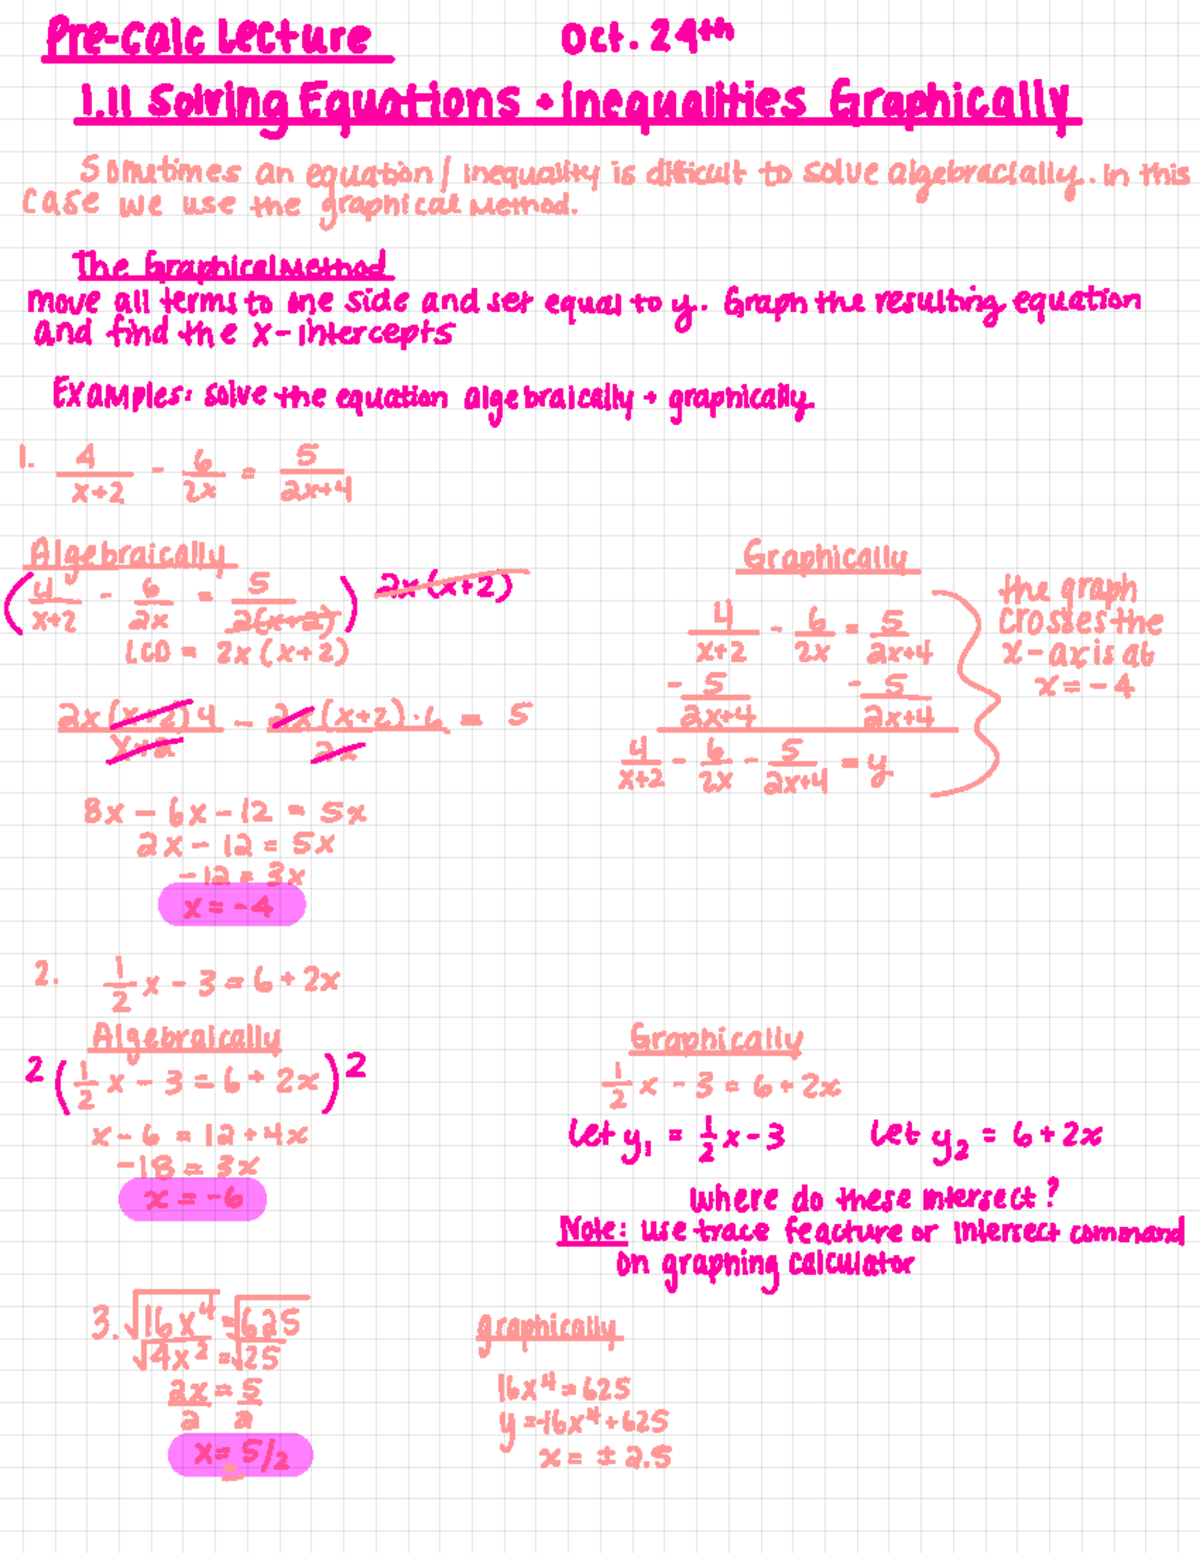 Pre-Calc Lecture Oct. 24th
1.11 Solving Equations + Inequalities Graphically
Sometimes an equation / inequality is difficult to solve algebracially. In this
case we use the graphical method.
The Graphical Method
move all terms to one side and set equal to y. Graph the resulting equation
and find the x-intercepts
Examples: solve the equation algebraically + graphically.
1. 4/(x+2) - 6/2x = 5/(2x+4)
Algebraically
(4/(x+2) - 6/2x = 5/2(x+2)) 2x(x+2)
LCD = 2x(x+2)
2x(x+2)4/(x+2) - 2x(x+2)·6/2x = 5
8x - 6x - 12 = 5x
2x - 12 = 5x
-12 = 3x
x = -4
Graphically
4/(x+2) - 6/2x = 5/(2x+4)
- 5/(2x+4) - 5/(2x+4)
4/(x+2) - 6/2x - 5/(2x+4) = y
the graph
crosses the
x-axis at
x = -4
2. 1/2 x - 3 = 6 + 2x
Algebraically
2(1/2 x - 3 = 6 + 2x)2
x - 6 = 12 + 4x
-18 = 3x
x = -6
Graphically
1/2 x - 3 = 6 + 2x
Let y₁ = 1/2 x - 3 Let y₂ = 6 + 2x
where do these intersect?
Note: use trace feacture or intersect command
on graphing calculator
3. √16x⁴ = √625
√4x² = √25
2x/2 = 5/2
x = ± 5/2
graphically
16x⁴ = 625
y = -16x⁴ + 625
x = ± 2.5